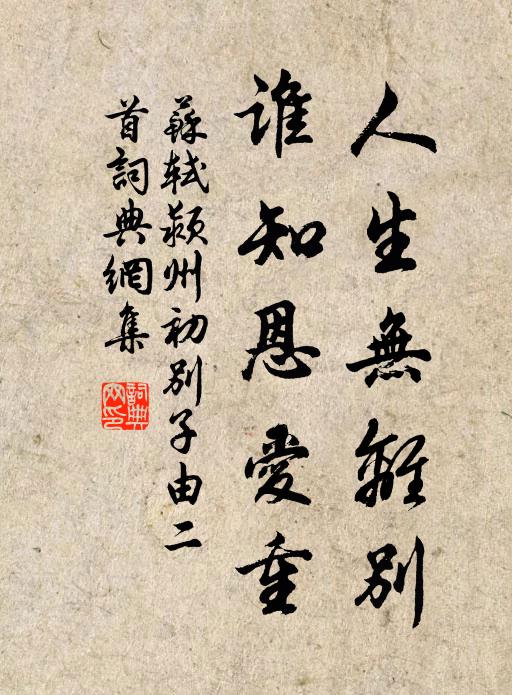 人生無離別
誰知恩愛重
蘇軾潁州初別子由二
首詞典網集
詞典
网印